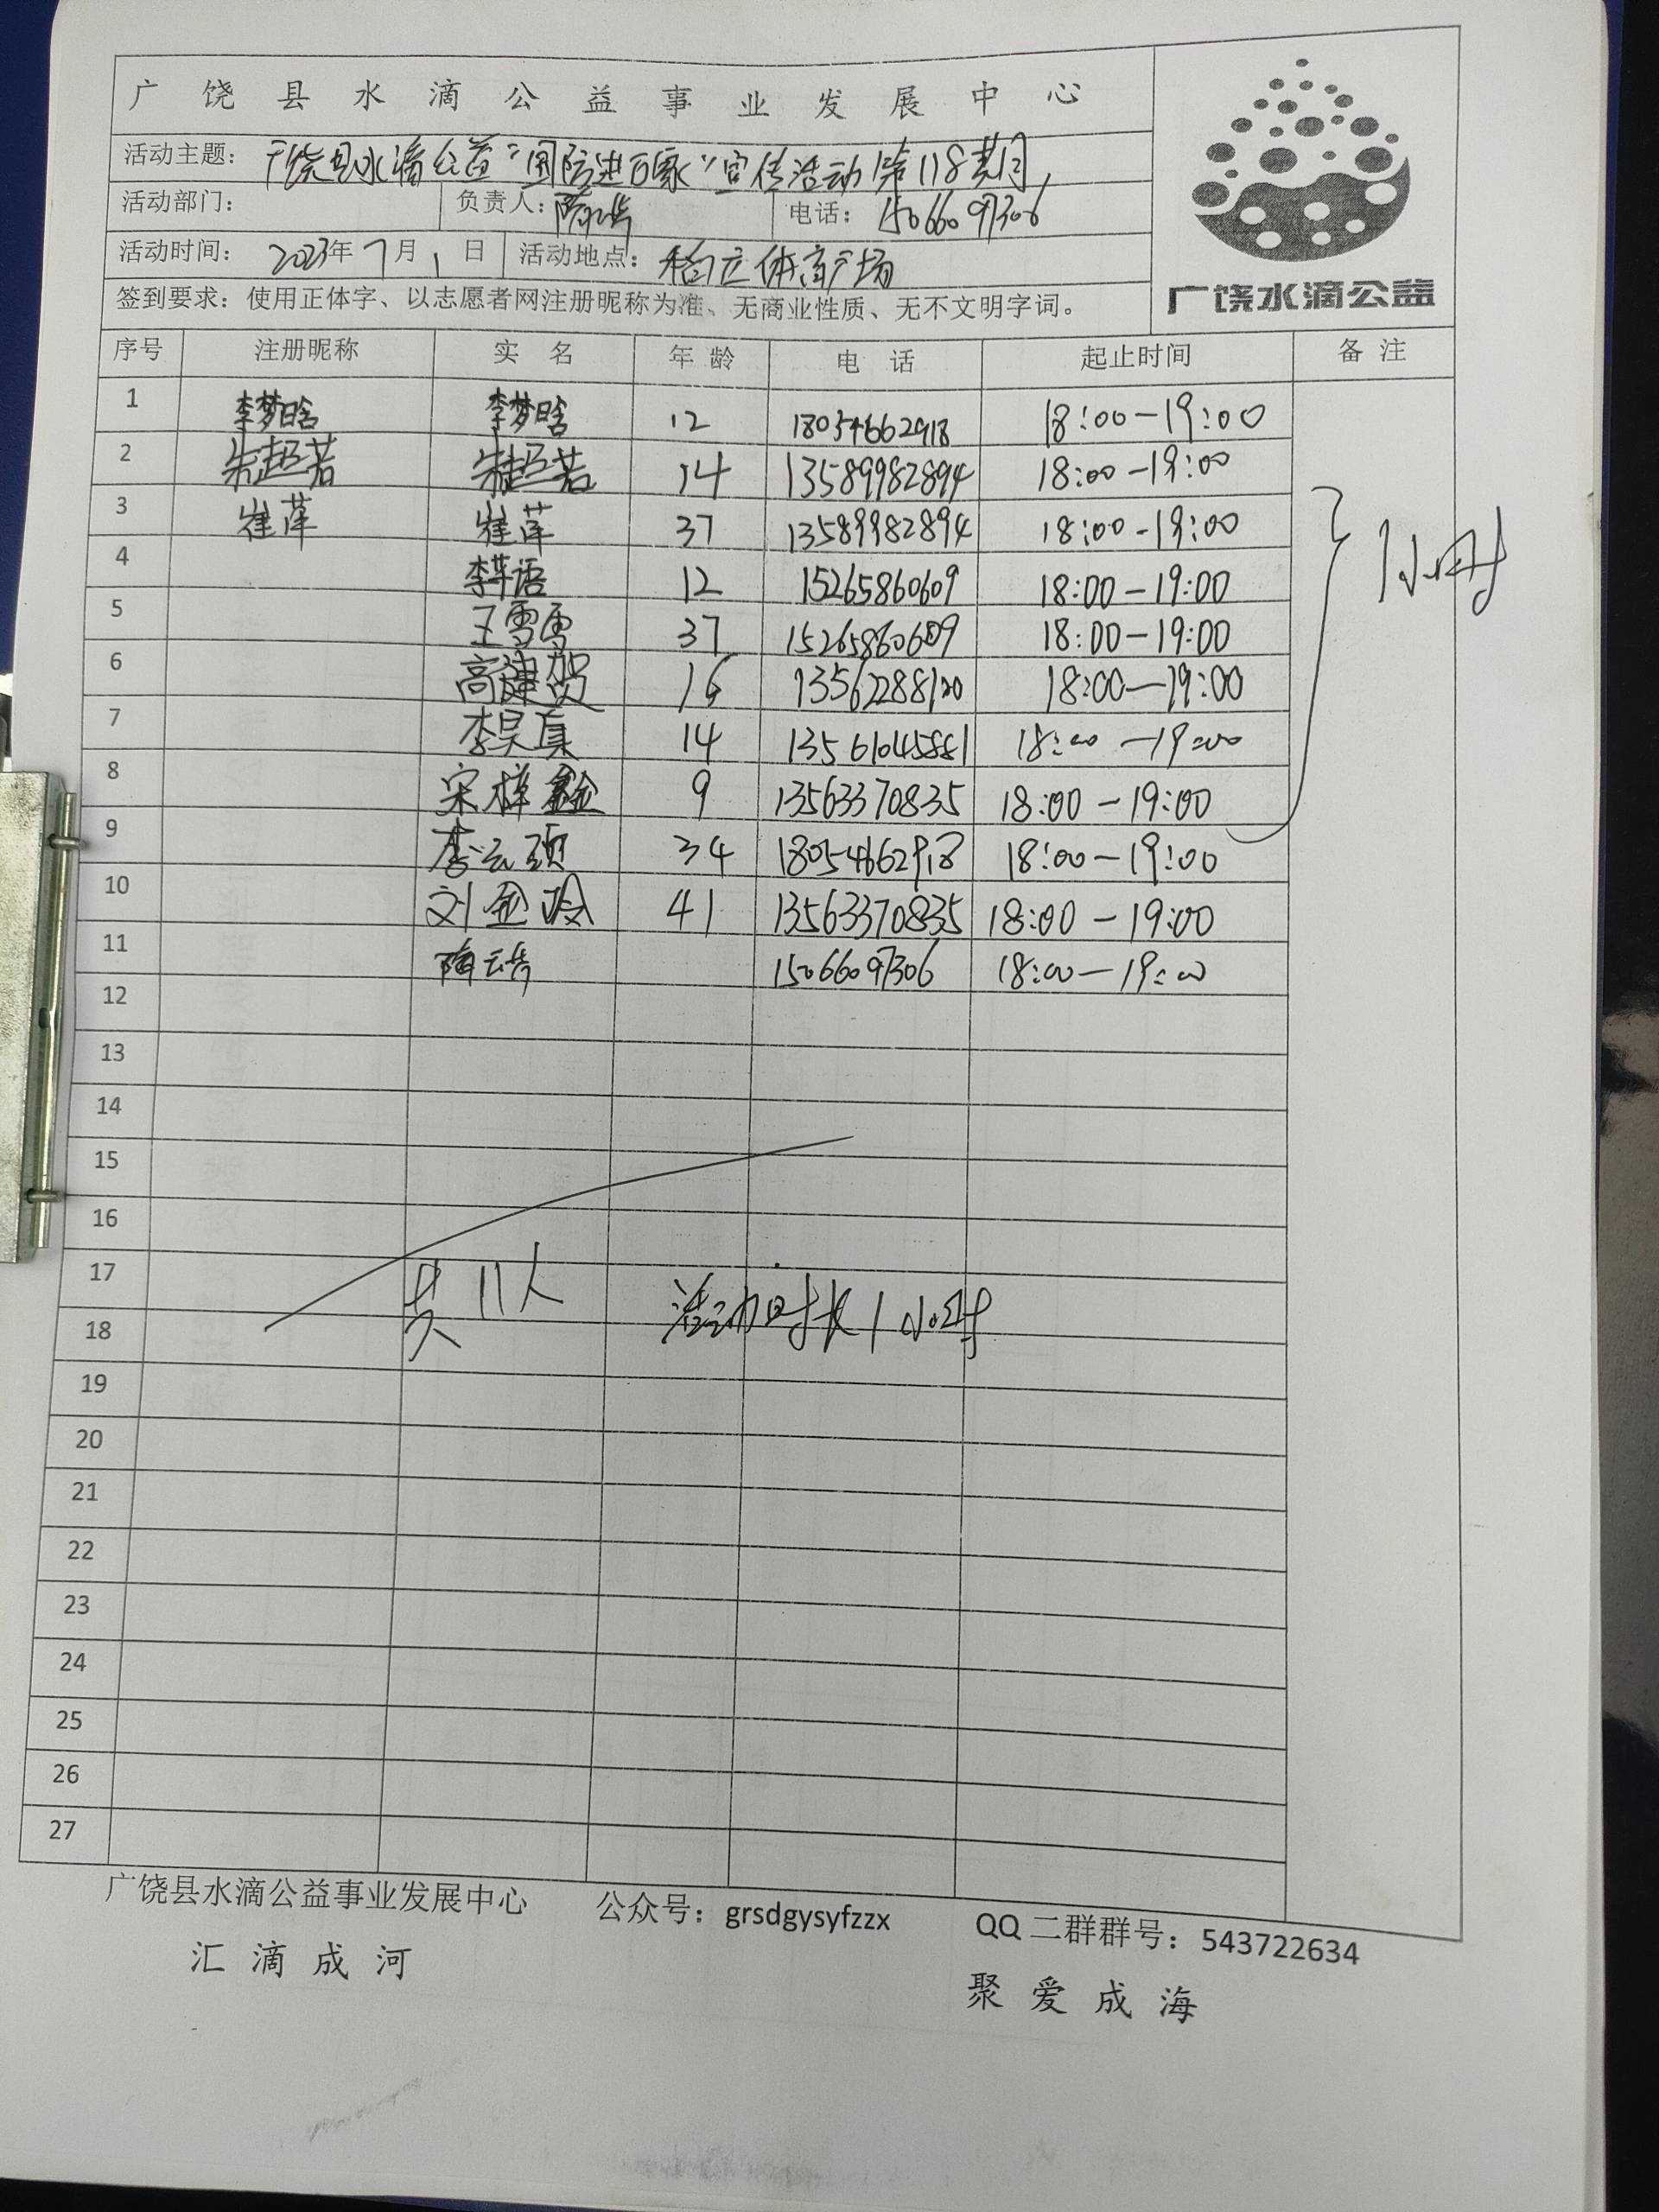 广饶县水滴公益事业发展中心
活动主题：广饶县水滴公益“国防进百家”宣传活动第118期
活动部门： 负责人： 电话：15066097306
活动时间：2023年7月1日 活动地点：稻庄体育广场
签到要求：使用正体字、以志愿者网注册昵称为准、无商业性质、无不文明字词。
广饶水滴公益
序号 注册昵称 实名 年龄 电话 起止时间 备注
1 李梦晗 李梦晗 12 18054662918 18:00-19:00
2 朱超若 朱超若 14 13589982894 18:00-19:00
3 崔萍 崔萍 37 13589982894 18:00-19:00
1小时
4 李语 12 15265860609 18:00-19:00
5 王雪 37 15265860609 18:00-19:00
6 高建贺 16 13562288120 18:00-19:00
7 李昊真 14 13561045881 18:00-19:00
8 宋梓鑫 9 13563370835 18:00-19:00
9 李云 34 18054662918 18:00-19:00
10 刘金玲 41 13563370835 18:00-19:00
11 15066097306 18:00-19:00
12
13
14
15
16
17
共11人 活动时长1小时
18
19
20
21
22
23
24
25
26
27
广饶县水滴公益事业发展中心 公众号：grsdgysyfzzx QQ二群群号：543722634
汇滴成河 聚爱成海